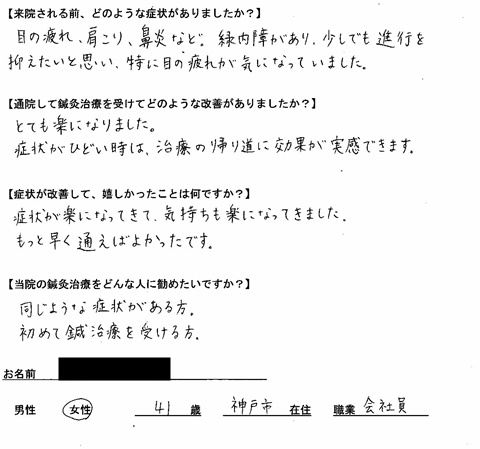 【来院される前、どのような症状がありましたか？】
目の疲れ、肩こり、鼻炎など。緑内障があり、少しでも進行を
抑えたいと思い、特に目の疲れが気になっていました。
【通院して鍼灸治療を受けてどのような改善がありましたか？】
とても楽になりました。
症状がひどい時は、治療の帰り道に効果が実感できます。
【症状が改善して、嬉しかったことは何ですか？】
症状が楽になってきて、気持ちも楽になってきました。
もっと早く通えばよかったです。
【当院の鍼灸治療をどんな人に勧めたいですか？】
同じような症状がある方。
初めて鍼治療を受ける方。
お名前
男性 女性 41 歳 神戸市 在住 職業 会社員